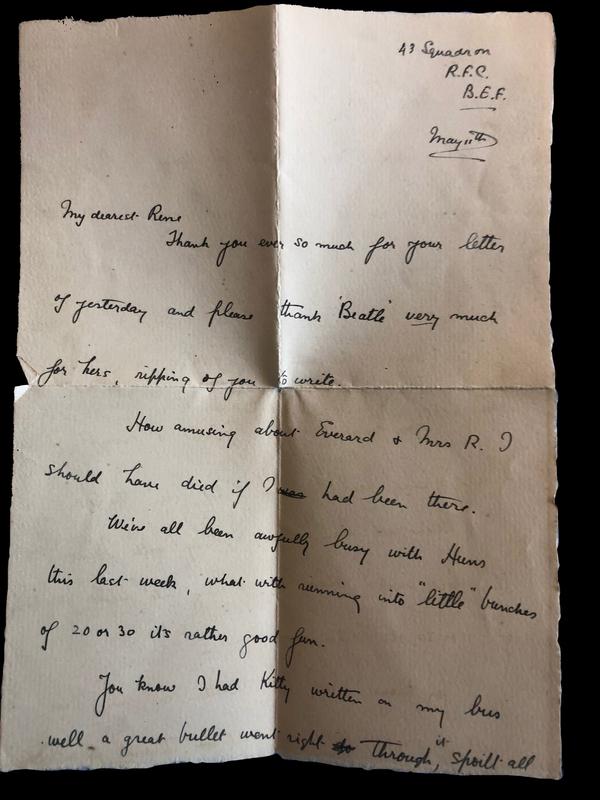 43 Squadron
R.F.C.
B.E.F.
May 11th
My dearest Rene
Thank you ever so much for your letter
of yesterday and please thank 'Beatle' very much
for hers, ripping of you to write.
How amusing about Everard & Mrs R. I
should have died if I was had been there.
We've all been awfully busy with Huns
this last week, what with running into "little" bunches
of 20 or 30 it's rather good fun.
You know I had Kitty written on my bus
well a great bullet went right to through it, spoilt all